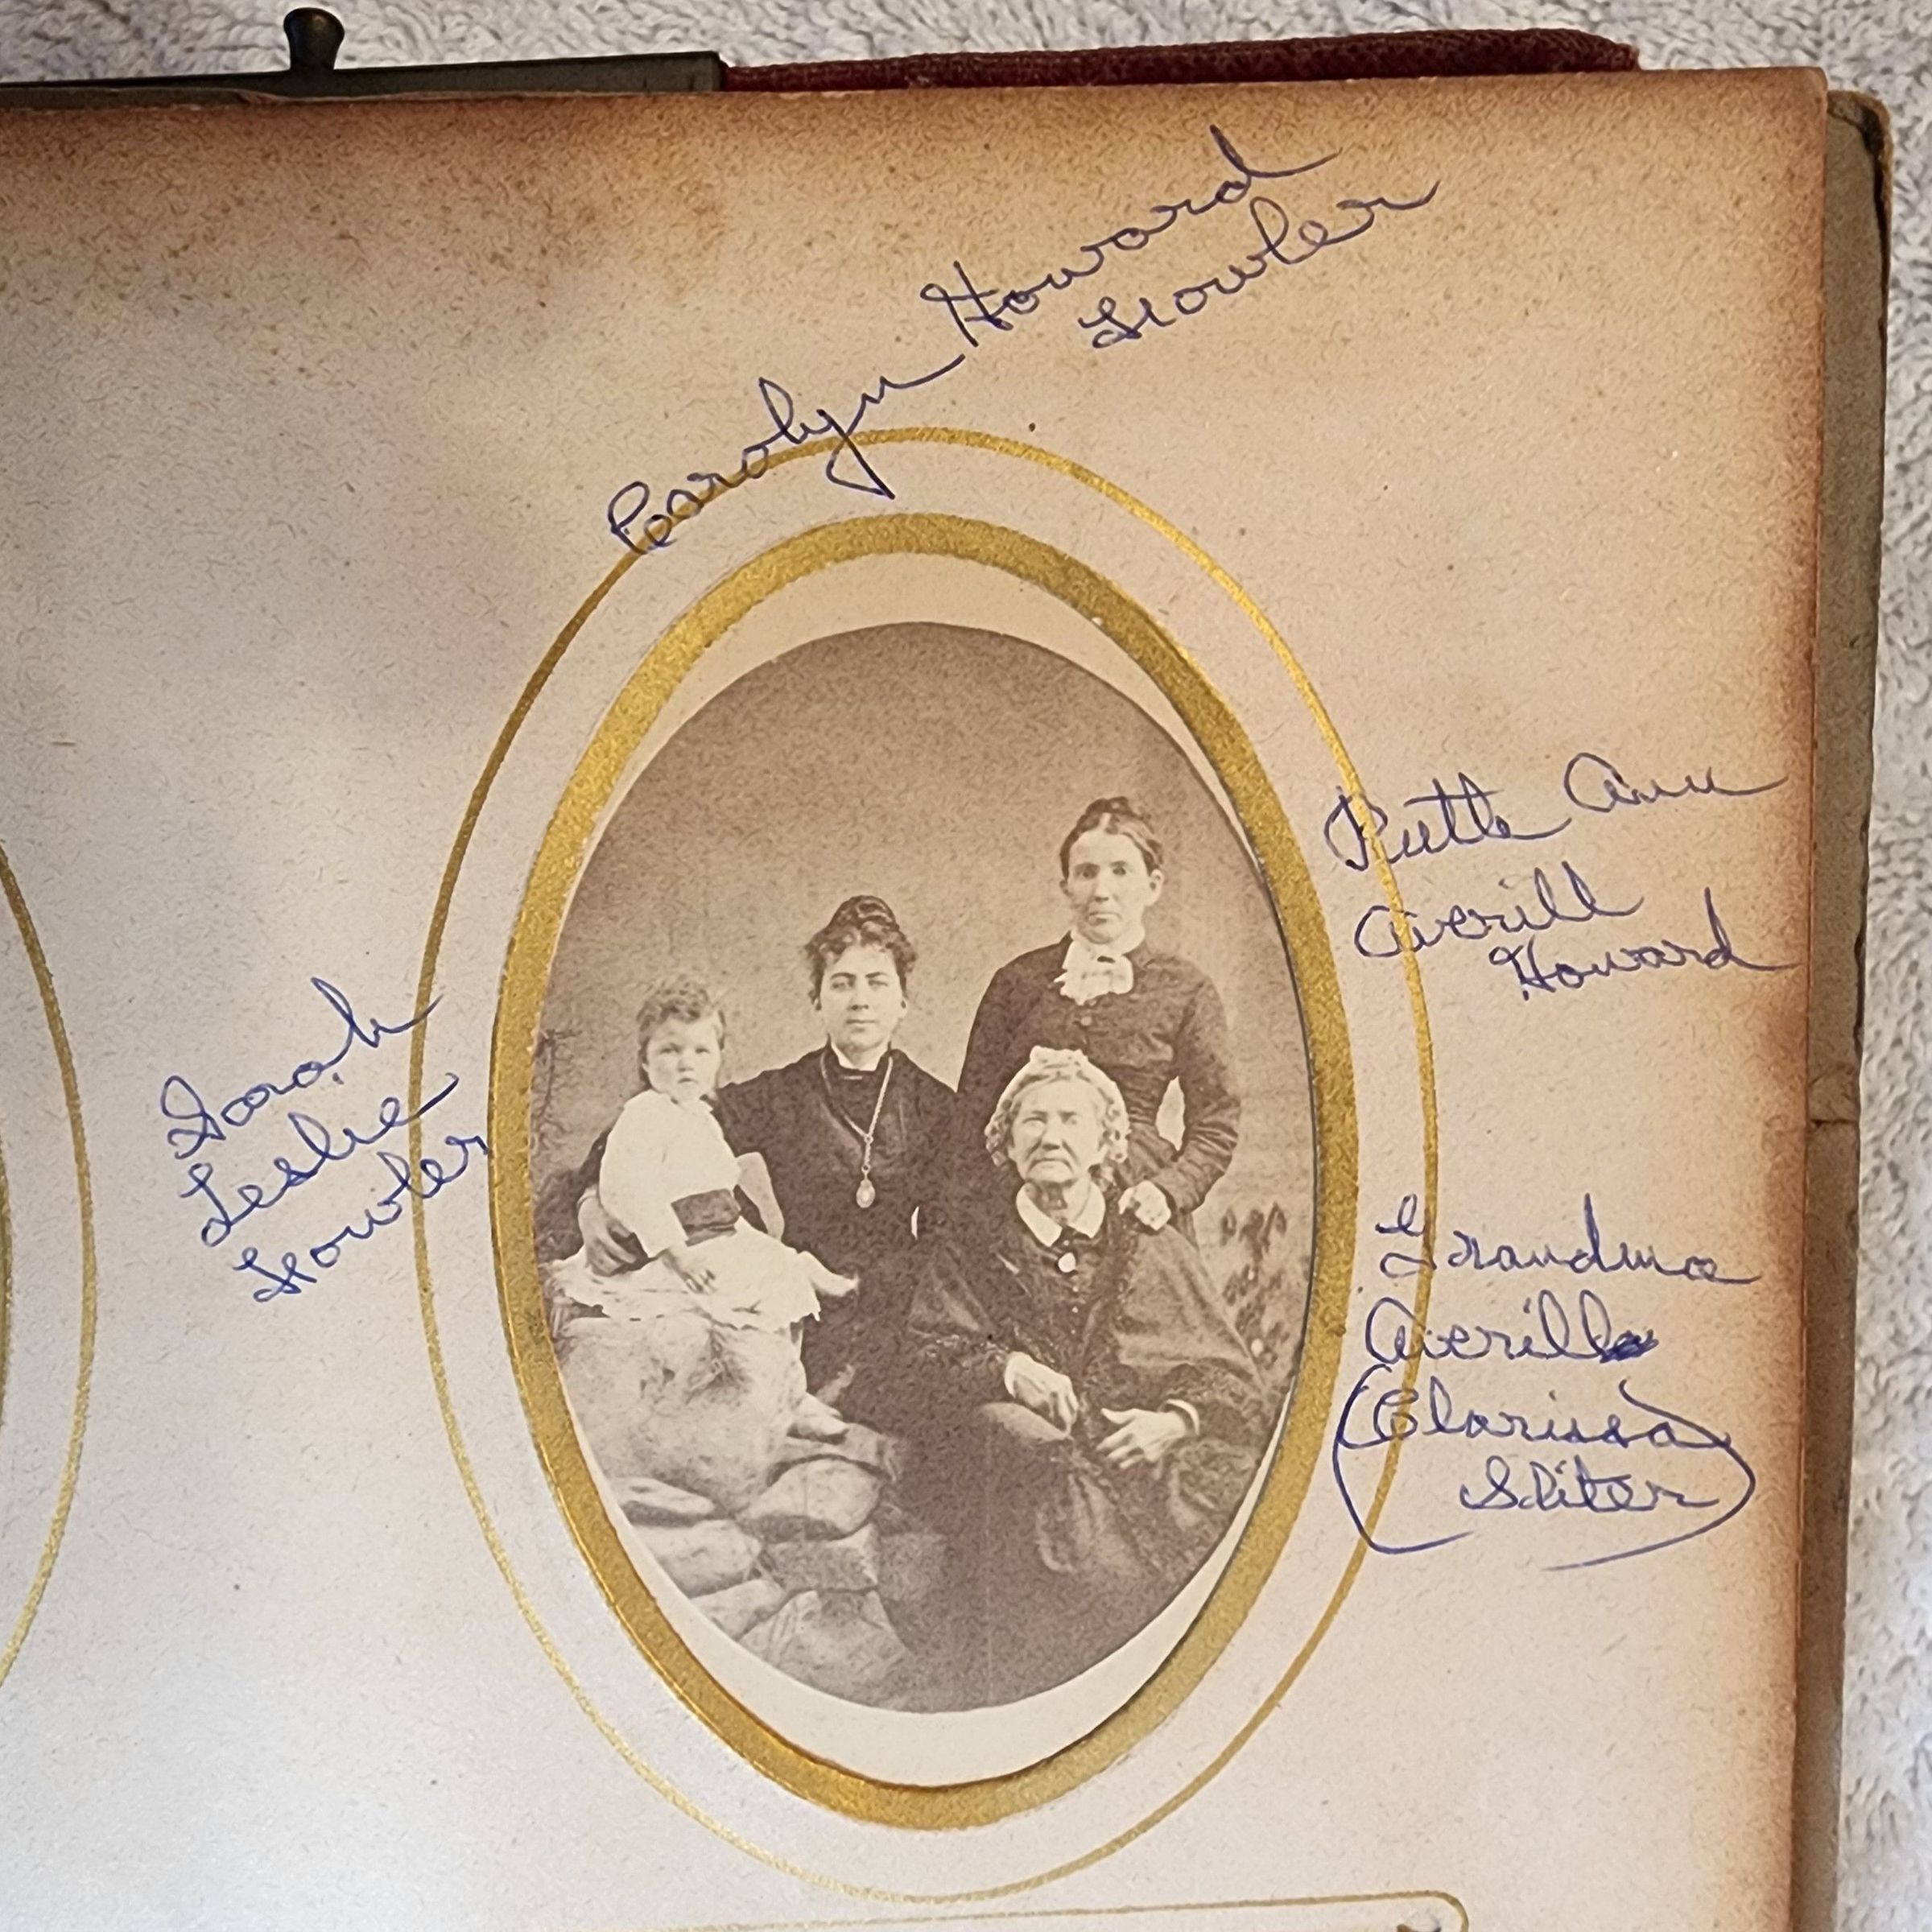 Carolyn Howard
Fowler
Ruth Ann
Averill
Howard
Sarah
Leslie
Fowler
Grandma
Averill
(Clarissa
Sliter)